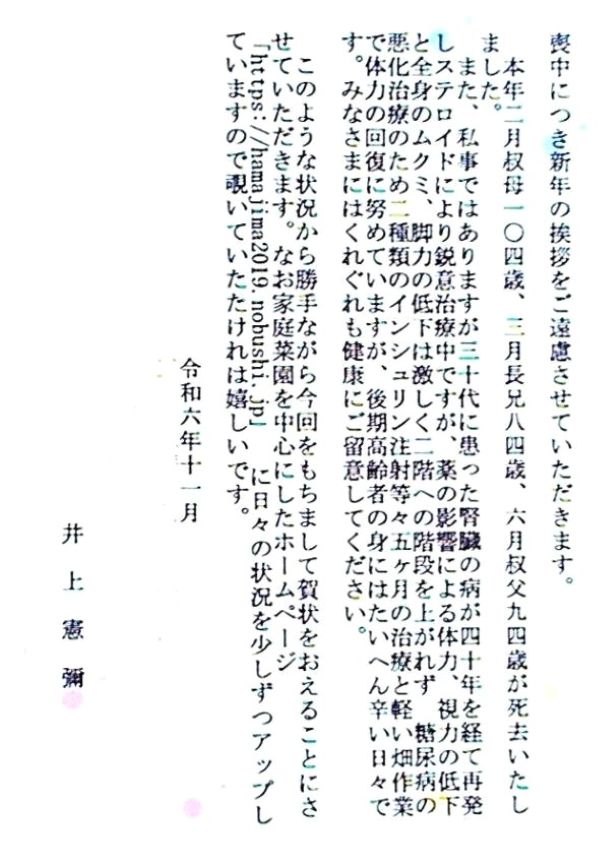 喪中につき新年の挨拶をご遠慮させていただきます。
本年二月叔母一〇四歳、三月長兄八四歳、六月叔父九四歳が死去いたし
ました。
また、私事ではありますが三十代に患った腎臓の病が四十年を経て再発
しステロイドにより鋭意治療中ですが、薬の影響による体力、視力の低下
と全身のムクミ、脚力の低下は激しく二階への階段を上がれず、糖尿病の
悪化治療のため二種類のインシュリン注射等々五ヶ月の治療と軽い畑作業
で体力の回復に努めていますが、後期高齢者の身にはたいへん辛い日々で
す。みなさまにはくれぐれも健康にご留意してください。
このような状況から勝手ながら今回をもちまして賀状をおえることにさ
せていただきます。なお家庭菜園を中心にしたホームページ
「https://hamajima2019.nobushi.jp」に日々の状況を少しずつアップし
ていますので覗いていたたけれは嬉しいです。
令和六年十一月
井上憲彌